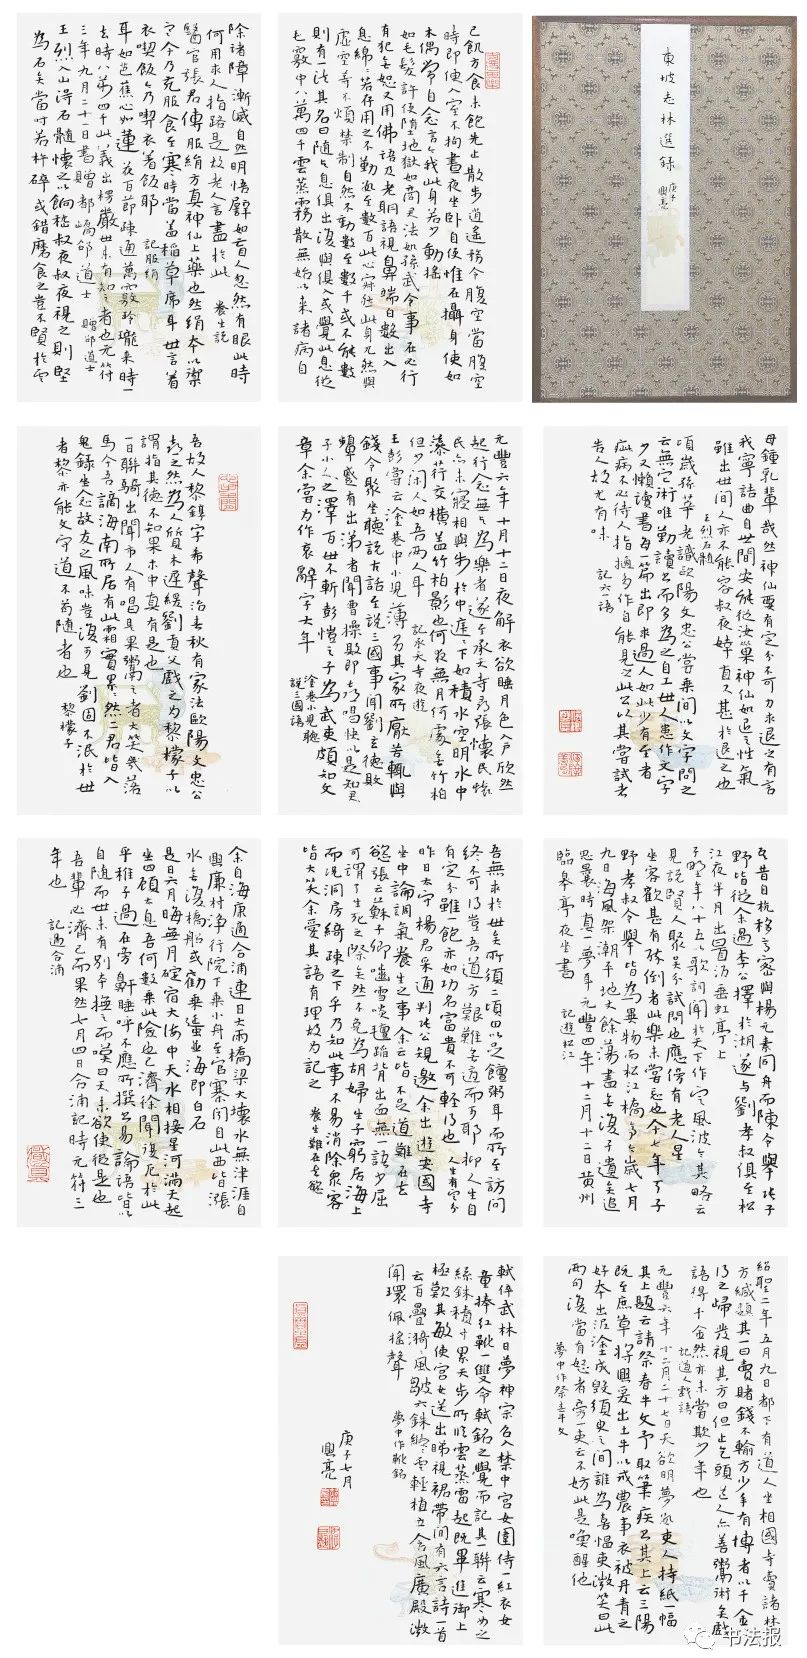 東坡志林選錄
庚子 興亮
已飢方食未飽先止散步逍遙務令腹空當腹空
時即便入室不拘晝夜坐卧自便惟在攝身使如
木偶常自念言今我此身若少動搖
如毛髮許便墮地獄如商君法如孫武令事在必行
有犯無恕又用佛語及老聃語視鼻端白數出入
息綿綿若存用之不勤數至數百此心寂然此身兀然與
虛空等不煩禁制自然不動數至數千或不能數
則有一法其名曰隨與息俱出復與俱入或覺此息從
毛竅中八萬四千雲蒸霧散無始以來諸病自
除諸障漸滅自然明悟譬如盲人忽然有眼此時
何用求人指路是故老人言盡於此 養生説
醫官張君傳服絹方真神仙上藥也然絹本以禦
寒今乃充服食至寒時當蓋稻草席耳世言着
衣喫飯今乃喫衣着飯耶 記服絹
耳如芭蕉心如蓮花百節疎通萬竅玲瓏來時一
去時八萬四千此義出楞嚴世未有知之者也元符
三年九月二十一日書贈都嶠邵道士 贈邵道士
王烈入山得石髓懷之以餉嵇叔夜叔夜視之則堅
為石矣當時若杵碎或錯磨食之豈不賢於雲
母鍾乳輩哉然神仙要有定分不可力求退之有言
我寧詰曲自世間安能從汝巢神仙如退之性氣
雖出世間人亦不能容叔夜婞直又甚於退之也
王烈石髓
頃歲孫莘老識歐陽文忠公嘗乘間以文字問之
云無它術唯勤讀書而多為之自工世人患作文字
少又懶讀書每一篇出即求過人如此少有至者
疵病不必待人指擿多作自能見之此公以其嘗試者
告人故尤有味 記六一語
元豐六年十月十二日夜解衣欲睡月色入戶欣然
起行念無與為樂者遂至承天寺尋張懷民懷
民亦未寢相與步於中庭庭下如積水空明水中
藻荇交橫蓋竹柏影也何夜無月何處無竹柏
但少閑人如吾兩人耳 記承天寺夜遊
王彭嘗云塗巷中小兒薄劣其家所厭苦輒與
錢令聚坐聽説古話至説三國事聞劉玄德敗
顰蹙有出涕者聞曹操敗即喜唱快以是知君
子小人之澤百世不斬彭愷之子為武吏頗知文
章余嘗為作哀辭字大年 塗巷小兒聽説三國語
吾故人黎錞字希聲治春秋有家法歐陽文忠公
喜之然為人質木遲緩劉貢父戲之為黎檬子以
謂指其德不知果木中真有是也
一日聯騎出聞市人有唱是果鬻之者大笑幾落
馬今吾謫海南所居有此霜實累累然二君皆入
鬼錄坐念故友之風味豈復可見劉固不泯於世
者黎亦能文守道不苟隨者也 黎檬子
吾昔自杭移高密與楊元素同舟而陳令舉張子
野皆從余過李公擇於湖遂與劉孝叔俱至松
江夜半月出置酒垂虹亭上
子野年八十五以歌詞聞於天下作定風波令其略云
見説賢人聚吳分試問也應傍有老人星
坐客歡甚有醉倒者此樂未嘗忘也今七年爾子
野孝叔令舉皆為異物而松江橋亭今歲七月
九日海風架潮平地丈餘蕩盡無復孑遺矣追
思曩時真一夢耳元豐四年十二月十二日黃州
臨皋亭夜坐書 記遊松江
吾無求於世矣所須二頃田以足饘粥耳而所至訪問
終不可得豈吾道方艱難無適而可耶抑人生自
有定分雖一飽亦如功名富貴不可輕得也 人生有定分
昨日太守楊君采通判張公規邀余出遊安國寺
坐中論調氣養生之事余云皆不足道難在去
慾張云蘇子卿嚙雪啖氊蹈背出血無一語少屈
可謂了生死之際矣然不免為胡婦生子窮居海上
而況洞房綺疎之下乎乃知此事不易消除衆客
皆大笑余愛其語有理故為記之 養生難在去慾
余自海康適合浦連日大雨橋梁大壞水無津涯自
興廉村淨行院下乘小舟至官寨聞自此西皆漲
水無復橋船或勸乘蜑並海即白石
是日六月晦無月碇宿大海中天水相接星河滿天起
坐四顧太息吾何數乘此險也已濟徐聞復厄於此
乎稚子過在旁鼾睡呼不應所撰書易論語皆以
自隨而世未有別本撫之而嘆曰天未欲使從是也
吾輩必濟已而果然七月四日合浦記時元符三
年也 記過合浦
紹聖二年五月九日都下有道人坐相國寺賣諸禁
方緘題其一曰賣賭錢不輸方少年有博者以千金
得之歸發視其方曰但止乞頭道人亦善鬻術矣戲
語得千金然亦未嘗欺少年也
記道人戲語
元豐六年十二月二十七日天欲明夢數吏人持紙一幅
其上題云請祭春牛文予取筆疾書其上云三陽
既至庶草將興爰出土牛以戒農事衣被丹青之
好本出泥塗成毀須臾之間誰為喜慍吏微笑曰此
兩句復當有怒者旁一吏云不妨此是喚醒他
夢中作祭春牛文
軾倅武林日夢神宗召入禁中宮女圍侍一紅衣女
童捧紅靴一雙命軾銘之覺而記其一聯云寒女之
絲銖積寸累天步所臨雲蒸雷起既畢進御上
極歎其敏使宮女送出睇視裙帶間有六言詩一首
云百疊漪漪風皺六銖縰縰雲輕植立含風廣殿微
聞環佩搖聲 夢中作靴銘
庚子七月
興亮
书法报